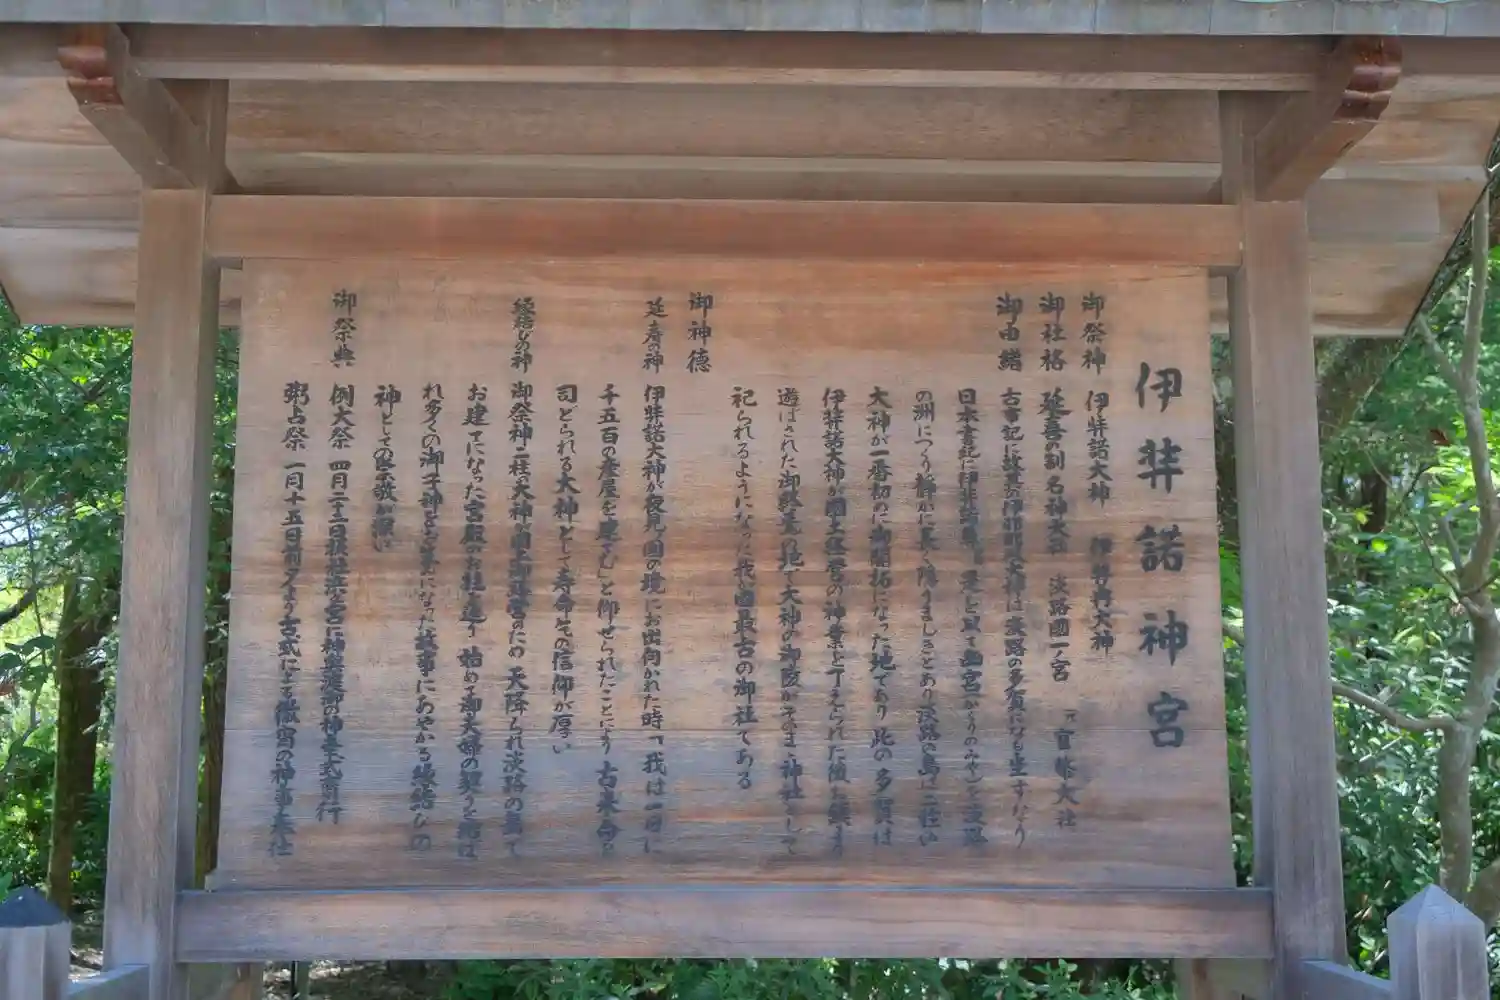 伊弉諾神宮
御祭神 伊弉諾大神 伊弉冉大神
御社格 延喜の制 名神大社 淡路國一宮 元官幣大社
御由緒 古事記に故其の伊耶那岐大神は淡路の多賀になも坐すなり
日本書紀に伊弉諾尊 是を以て幽宮(かくりのみや)を淡路
の洲につくり静かに 長く隠りましきとあり 淡路の島は二柱の
大神が一番初めに御開拓になった地であり 此の多賀は
伊弉諾大神が國土経営の神業を了えられた後 お鎮まり
遊ばされた御終焉の地で 大神の御陵がそのまま神社として
祀られるようになった我が國最古の御社である
御神徳
延寿の神 伊弉諾大神が夜見の国の境にお出向かれた時 「我は一日に
千五百の産屋を建てむ」と仰せられたことにより 古来命を
司どられる大神として寿命の信仰が厚い
縁結びの神 御祭神二柱の大神が国土御経営のため 天降られ淡路の島で
お建てになった宮殿のお柱を造り 始めて御夫婦の契りを結ば
れ多くの御子神を お産みになった故事にあやかる縁結びの
神としての崇敬が深い
御祭典 例大祭 四月二十二日 摂社浜宮に神輿渡御の神幸式斎行
粥占祭 一月十五日 前夕より古式による徹宵の神事奉仕